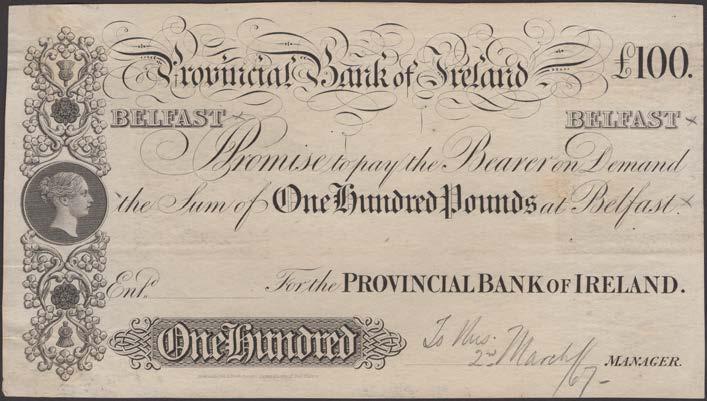 Provincial Bank of Ireland £100.
BELFAST × BELFAST ×
Promise to pay the Bearer on Demand
× the Sum of One Hundred Pounds at Belfast. ×
Entd. For the PROVINCIAL BANK OF IRELAND.
One Hundred
2nd March
/67 - MANAGER.